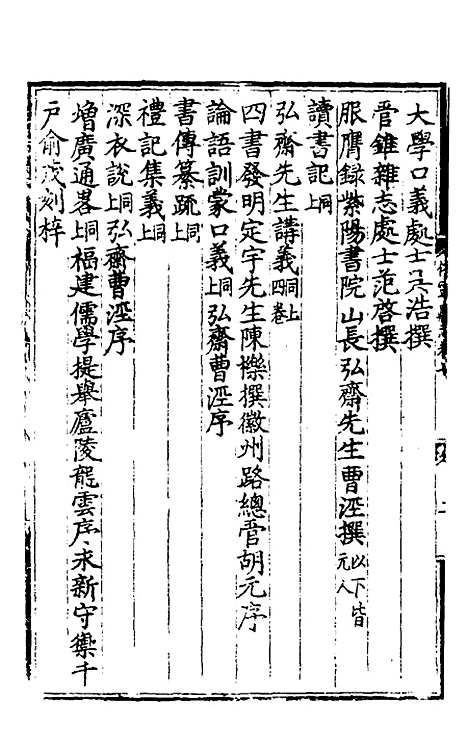 大學口義處士吳浩撰
管錐雜志處士范啓撰
服膺錄紫陽書院山長弘齋先生曹涇撰以下皆元人
讀書記同上
弘齋先生講義同上四卷
四書發明定宇先生陳櫟撰徽州路總管胡元序
論語訓蒙口義同上弘齋曹涇序
書傳纂疏同上
禮記集義同上
深衣說同上弘齋曹涇序
增廣通畧同上福建儒學提舉廬陵熊雲序永新守禦千
戶俞茂刻梓